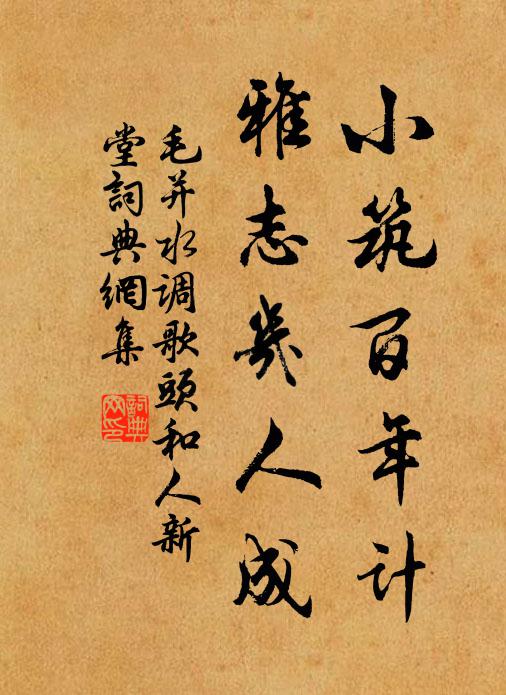 小筑百年计
雅志几人成
毛并水调歌头和人新
堂词典网集
詞典网印